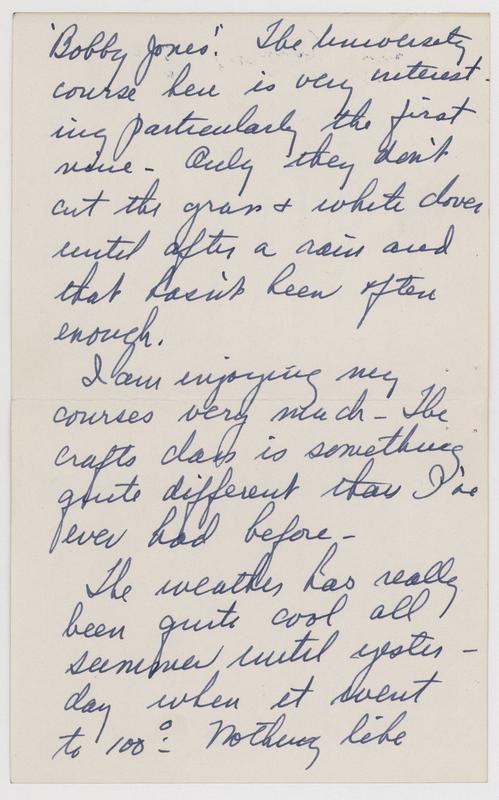 'Bobby Jones'. The University
course here is very interest-
ing particularly the first
nine - Only they don't
cut the grass & white clover
until after a rain and
that hasn't been often
enough.
I am enjoying my
courses very much - The
crafts class is something
quite different than I've
ever had before -
The weather has really
been quite cool all
summer until yester-
day when it went
to 100° - Nothing like